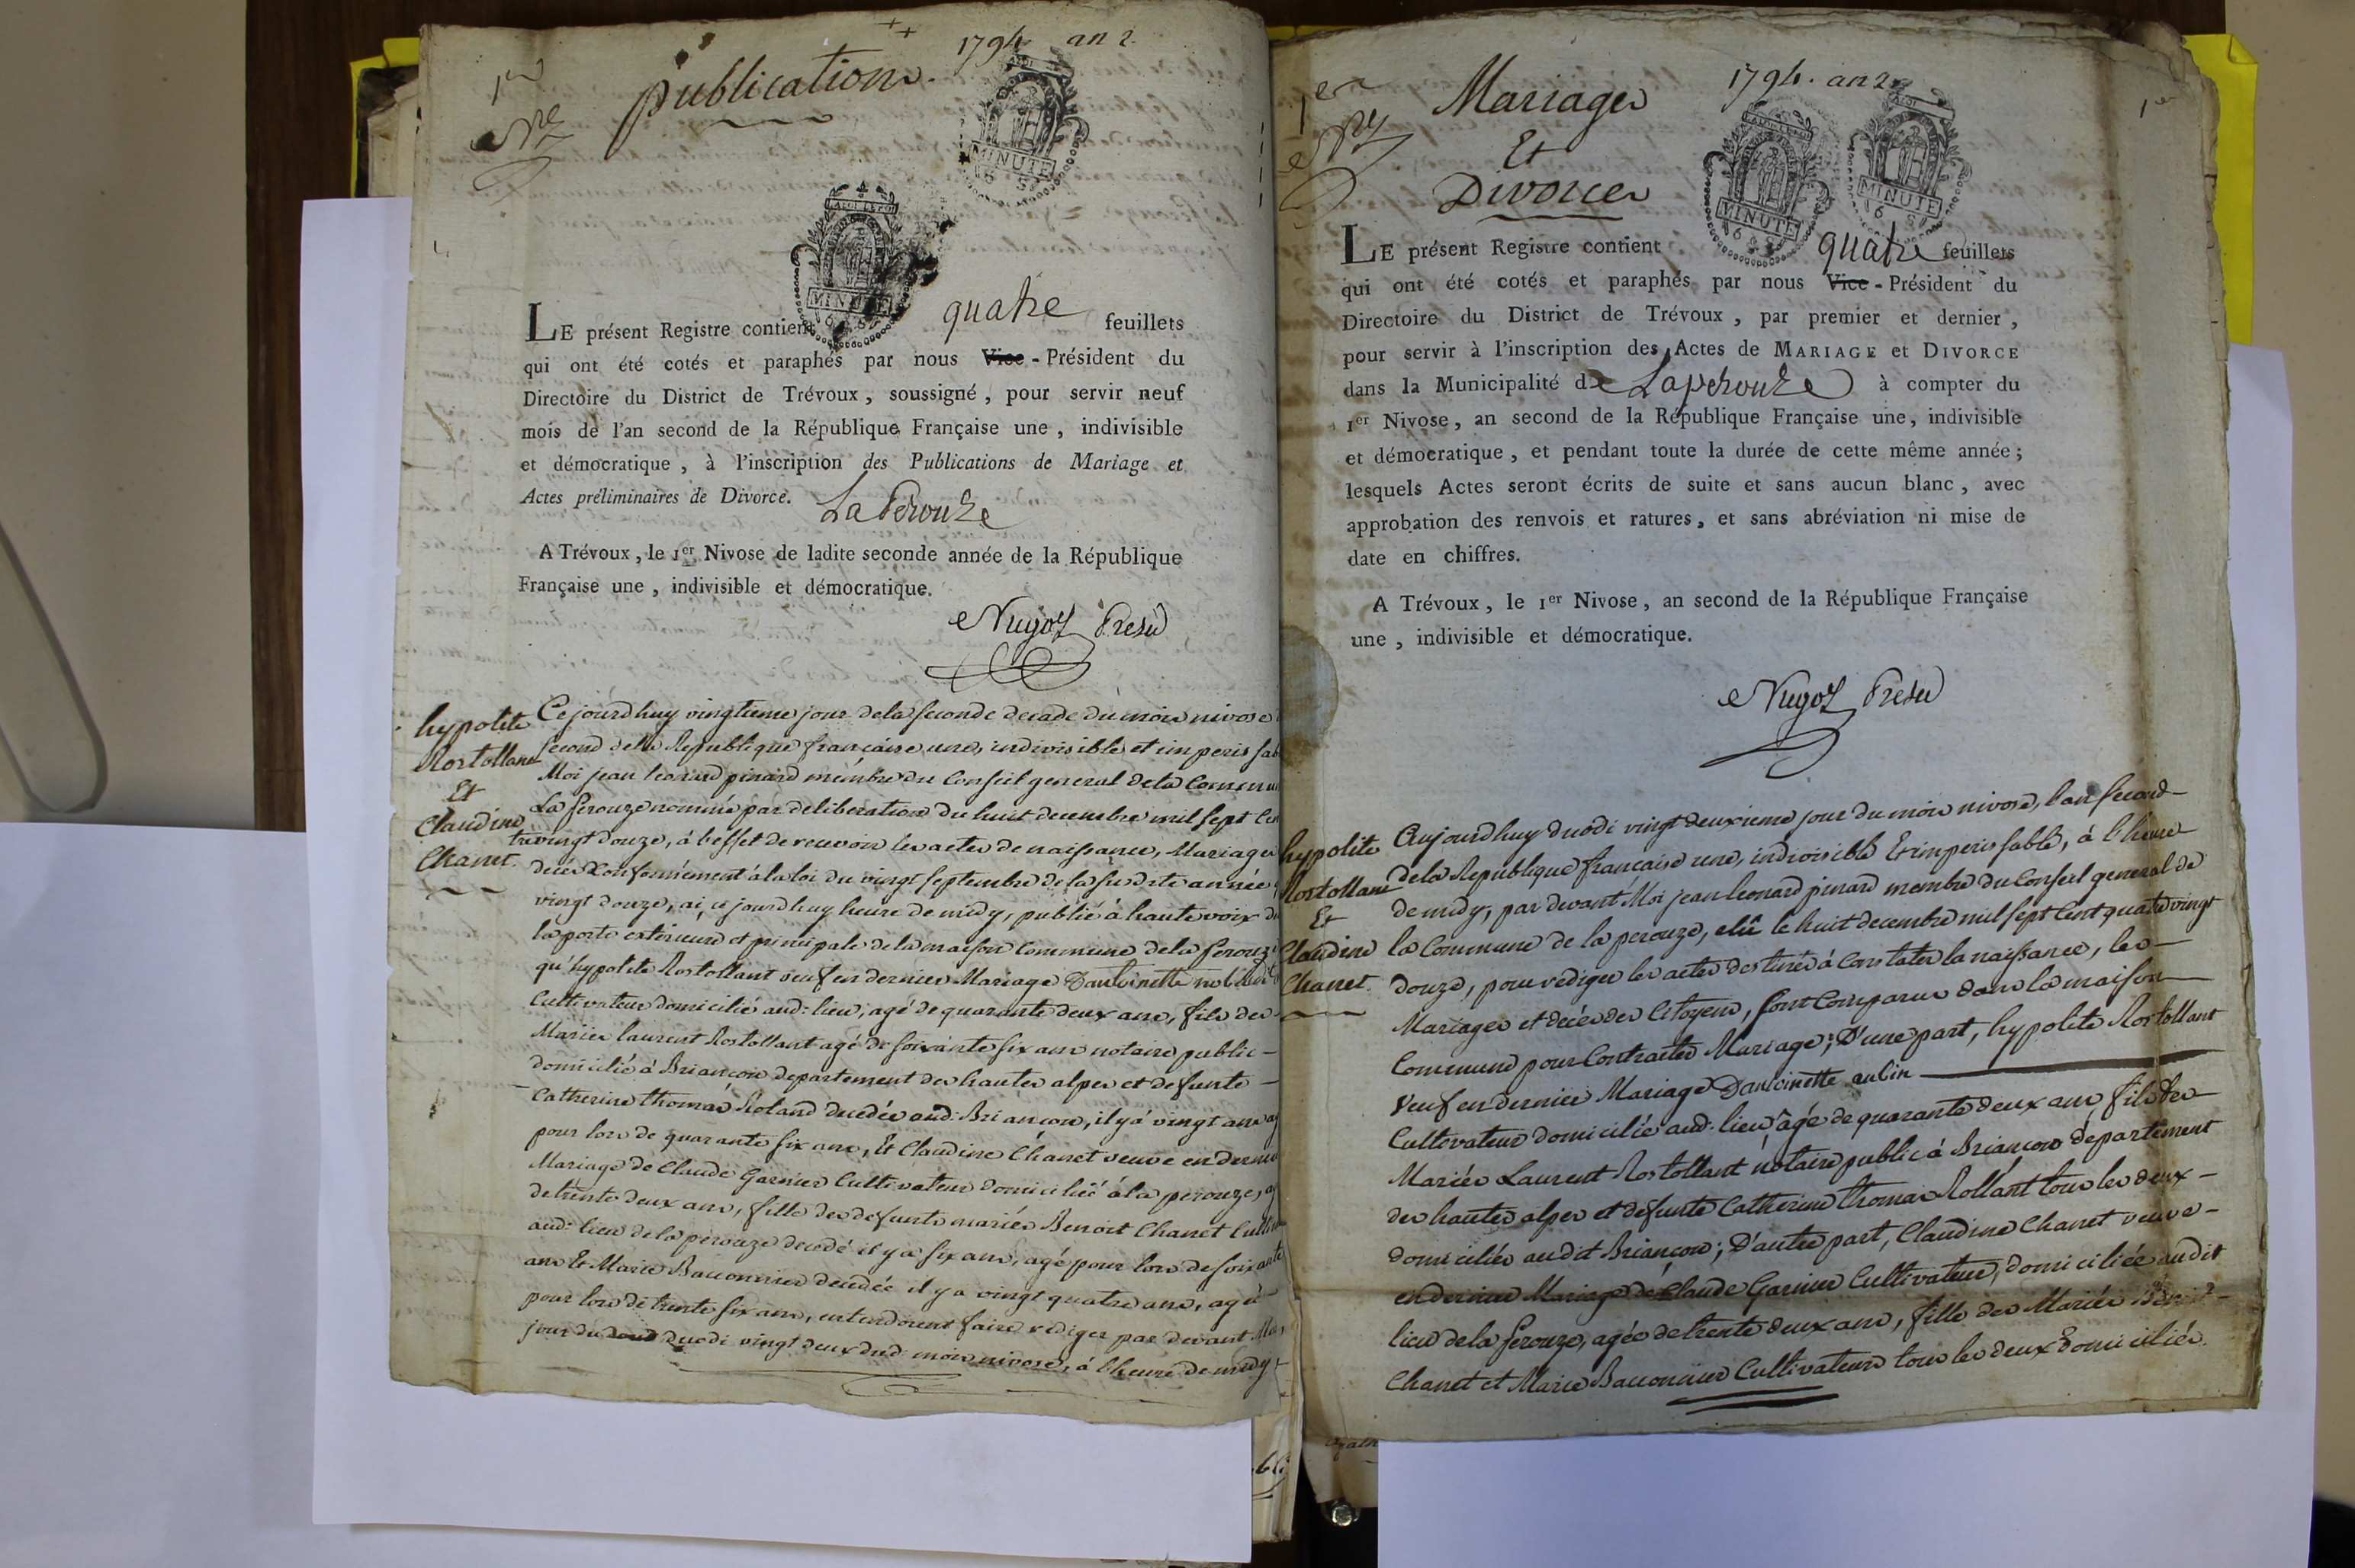 1er
Publication.
1794 an 2.
LA LOI LE ROI
MINUTE
MINUTE
LE présent Registre contient quatre feuillets
qui ont été cotés et paraphés par nous Vice - Président du
Directoire du District de Trévoux , soussigné , pour servir neuf
mois de l'an second de la République Française une , indivisible
et démocratique , à l'inscription des Publications de Mariage et
Actes préliminaires de Divorce. La Perouze
A Trévoux , le 1er Nivose de ladite seconde année de la République
Française une , indivisible et démocratique.
Presid
hypolite
Rostollant
Et
Claudine
Chanet.
Ce jourdhuy vingtieme jour de la seconde decade du mois nivose
second de la Republique francaise une, indivisible et imperissab
Moi jean leonard pinard membre du Conseil general de la Commu
La Perouze nommé par deliberation du huit decembre mil sept Cen
trevingt douze, à l'effet de recevoir les actes de naissance, Mariages
deces Conformement à la loi du vingt septembre de la susdite année
vingt douze, ai, ce jourdhuy heure de midy, publié à haute voix d
la porte exterieure et principale de la maison Commune de la Perouz
qu'hypolite Rostollant veuf en dernier Mariage D'antoinette
Cultivateur domicilié aud: lieu, agé de quarante deux ans, fils des
Mariés laurent Rostollant agé de soixante six ans notaire public -
domicilié à Briançon departement des hautes alpes et defunte -
Catherine thomas Roland decedée aud: Briançon, il y a vingt ans ag
pour lors de quarante six ans, Et Claudine Chanet veuve en dernie
Mariage de Claude Garnier Cultivateur domiciliée à la perouze, ag
de trente deux ans, fille des defunts mariés Benoit Chanet Cultiva
aud: lieu de la perouze decedé il y a six ans, agé pour lors de soixante
ans Et Marie Bauonnier decedée il y a vingt quatre ans, agée
pour lors de trente six ans, entendoient faire rediger par devant Moi,
jour du duodi vingt deux dud: mois nivose, à l'heure de midy
1er
Mariages
Et
Divorces
1794. an 2.
1er
MINUTE
MINUTE
LE présent Registre contient quatre feuillets
qui ont été cotés et paraphés par nous Vice - Président du
Directoire du District de Trévoux , par premier et dernier ,
pour servir à l'inscription des Actes de MARIAGE et DIVORCE
dans la Municipalité de Laperouze à compter du
1er Nivose, an second de la République Française une, indivisible
et démocratique, et pendant toute la durée de cette même année;
lesquels Actes seront écrits de suite et sans aucun blanc , avec
approbation des renvois et ratures, et sans abréviation ni mise de
date en chiffres.
A Trévoux , le 1er Nivose , an second de la République Française
une , indivisible et démocratique.
Presid
hypolite
Rostollant
Et
Claudine
Chanet.
Aujourdhuy duodi vingt deuxieme jour du mois nivose, l'an second
de la Republique francaise une, indivisible Et imperissable, à l'heure
de midy, par devant Moi jean leonard pinard membre du Conseil general de
la Commune de la perouze, elû le huit decembre mil sept Cent quatre vingt
douze, pour rediger les actes destinés à Constater la naissance, les -
Mariages et decés des Citoyens, sont Comparus dans la maison
Commune pour Contracter Mariage; D'une part, hypolite Rostollant
Veuf en dernier Mariage D'antoinette aubin
Cultivateur domicilié aud: lieu, âgé de quarante deux ans, fils des
Mariés Laurent Rostollant notaire public à Briançon département
des hautes alpes et defunte Catherine thomas Rollant tous les deux -
domiciliés audit Briançon; D'autre part, Claudine Chanet veuve -
en dernier Mariage de Claude Garnier Cultivateur, domiciliée audit
lieu de la Perouze, agée de trente deux ans, fille des Mariés Benoit -
Chanet et Marie Bauonnier Cultivateurs tous les deux domiciliés.